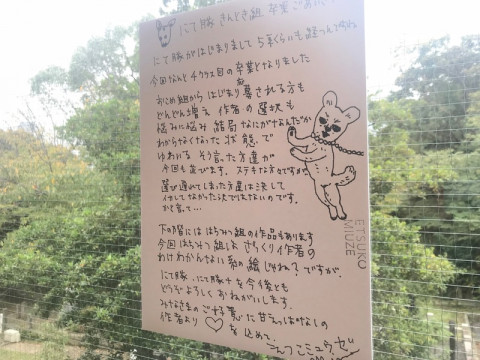 にて豚 きんとき組 卒業ごあいさつ
にて豚がはじまりまして 5年くらいも経つんですね
今回なんと チクリス目の卒業となりました
おこめ組から はじまり 募される方も
どんどん増え 作者の選択も
悩みに悩み 結局なにがなんだか
わからなくなった 状態で
ゆわいる そう言った方達が
今回も並びます。ステキな方々ですが
選び遅れてしまった方達は決して
仕せなかった訳ではないのです。
かと言って…
下の階には はちみつ組の作品もあります
今回 はちみつ組は ざっくり作者の
わけわかんない系の絵じゃね?ですが。
にて豚、にて豚チを今後とも
どうぞよろしく おねがいします。
みなさまのご寛恕に甘えっぱなしの
作者より ♡ を込めて。
えつこミュウゼ
ETSUKO
MIUZE